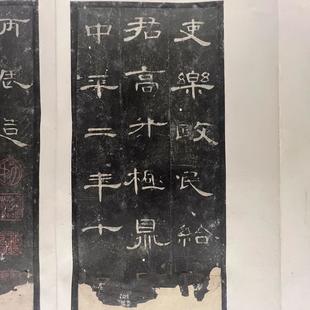 吏樂政民給
君高升極鼎
中平二年十
丙辰造